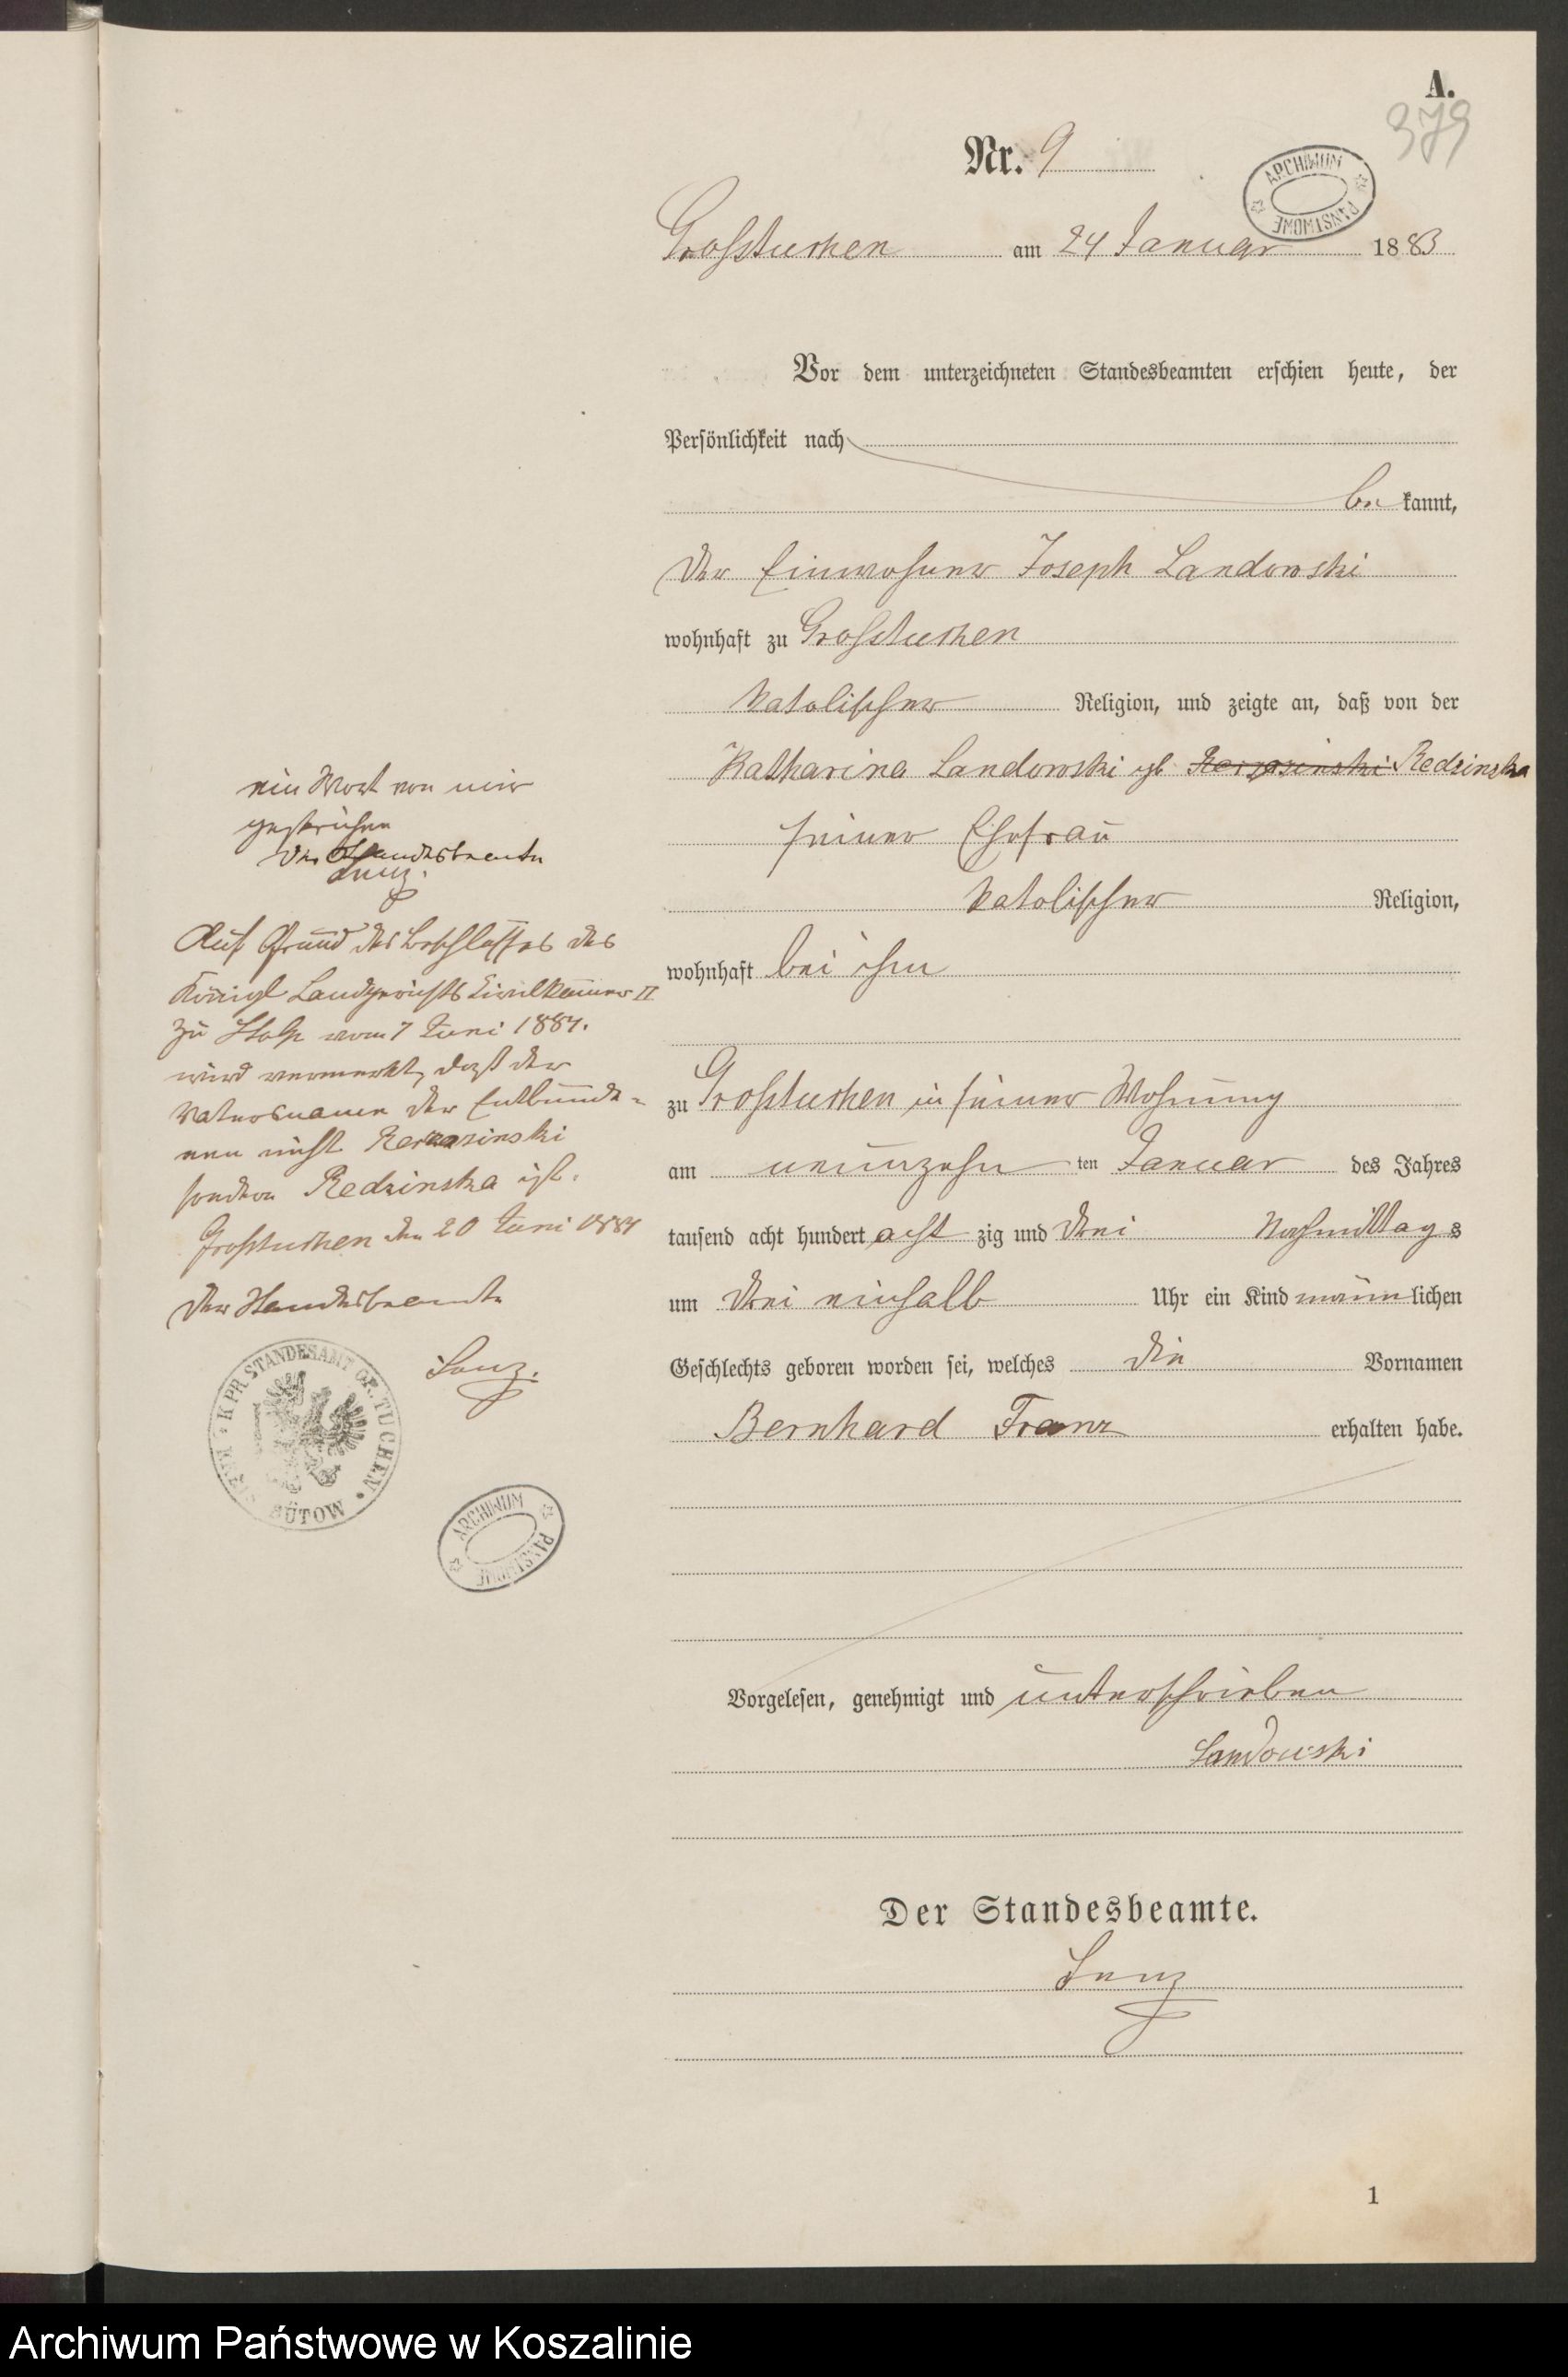 A.
379
Nr. 9
ARCHIWUM PAŃSTWOWE
Großtuchen am 24 Januar 1883
Vor dem unterzeichneten Standesbeamten erschien heute, der
Persönlichkeit nach
be kannt,
der Einwohner Joseph Landowski
wohnhaft zu Großtuchen
katolischer Religion, und zeigte an, daß von der
Katharina Landowski gb Redzinska
seiner Ehefrau
katolischer Religion,
wohnhaft bei ihm
zu Großtuchen in seiner Wohnung
am neunzehn ten Januar des Jahres
tausend acht hundert acht zig und drei Nachmittags
um drei einhalb Uhr ein Kind männlichen
Geschlechts geboren worden sei, welches die Vornamen
Bernhard Franz erhalten habe.
Vorgelesen, genehmigt und unterschrieben
Landowski
Der Standesbeamte.
Lenz
1
ein Wort von mir
gestrichen
Der Standesbeamte
Lenz.
Auf Grund des Beschlußes des
Königl Landgerichts Civilkammer II
zu Stolp vom 7 Juni 1884.
wird vermerkt, daß der
Vatersname der Entbunde-
nen nicht
sondern Redzinska ist.
Großtuchen den 20 Juni 1884
Der Standesbeamte
Lenz.
K. PR. STANDESAMT GR. TUCHEN
KREIS BÜTOW
ARCHIWUM PAŃSTWOWE
Archiwum Państwowe w Koszalinie